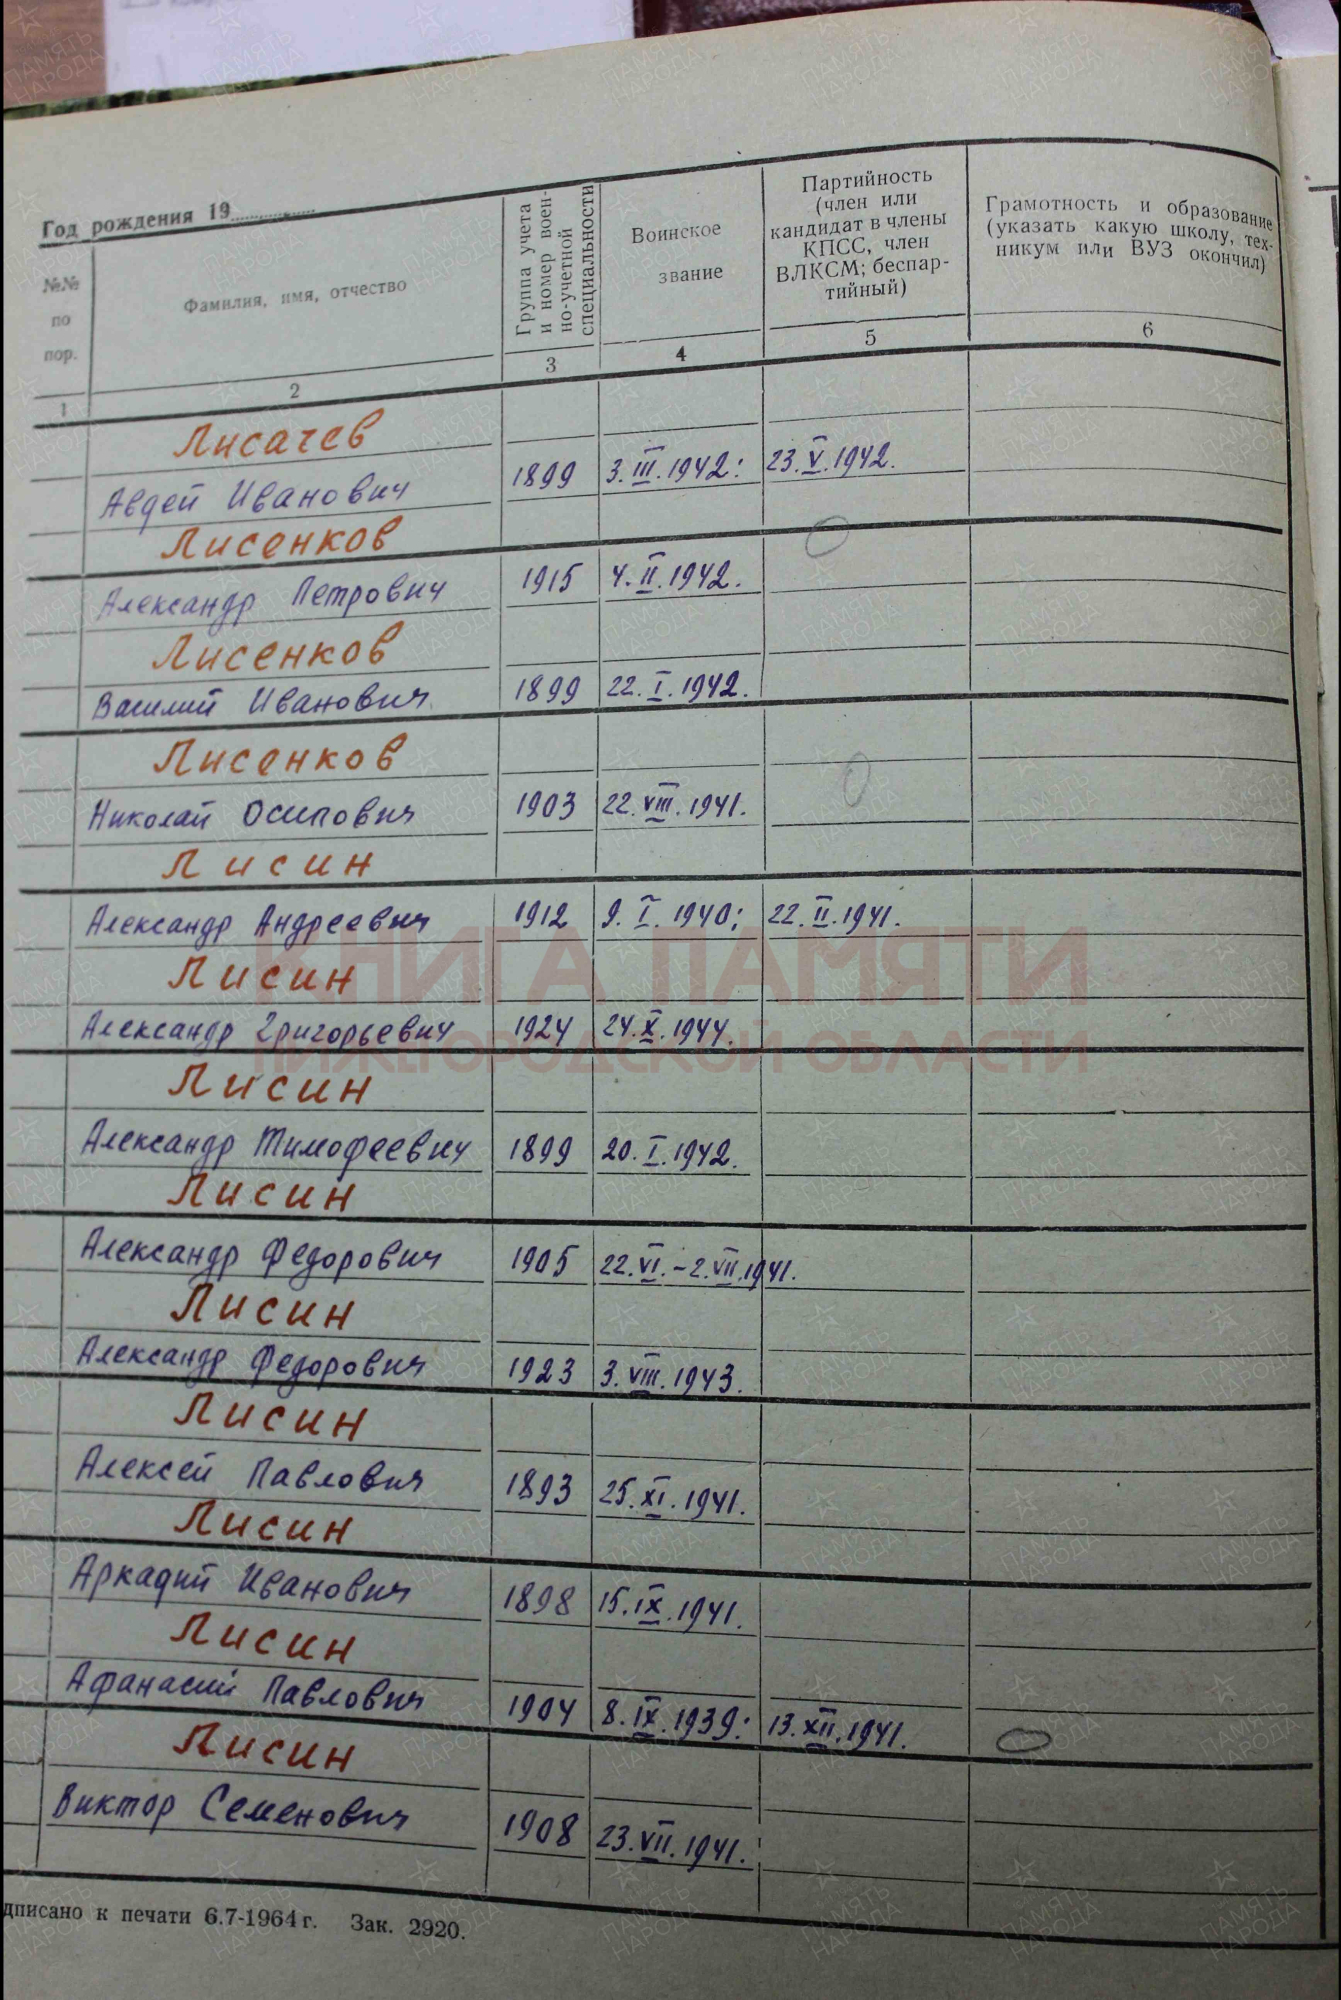 Год рождения 19
№№ по пор.
Фамилия, имя, отчество
Группа учета и номер воен-но-учетной специальности
Воинское звание
Партийность (член или кандидат в члены КПСС, член ВЛКСМ; беспар-тийный)
Грамотность и образование (указать какую школу, тех-никум или ВУЗ окончил)
1 2 3 4 5 6
Лисачев
Авдей Иванович 1899 3.III.1942: 23.V.1942.
Лисенков
Александр Петрович 1915 4.II.1942.
Лисенков
Василий Иванович 1899 22.I.1942.
Лисенков
Николай Осипович 1903 22.VIII.1941.
Лисин
Александр Андреевич 1912 9.I.1940; 22.II.1941.
Лисин
Александр Григорьевич 1924 24.X.1944.
Лисин
Александр Тимофеевич 1899 20.I.1942.
Лисин
Александр Федорович 1905 22.VI.-2.VII.1941.
Лисин
Александр Федорович 1923 3.VIII.1943.
Лисин
Алексей Павлович 1893 25.XI.1941.
Лисин
Аркадий Иванович 1898 15.IX.1941.
Лисин
Афанасий Павлович 1904 8.IX.1939: 13.XII.1941.
Лисин
Виктор Семенович 1908 23.VII.1941.
дписано к печати 6.7-1964 г. Зак. 2920.
КНИГА ПАМЯТИ
НИЖЕГОРОДСКОЙ ОБЛАСТИ
ПАМЯТЬ НАРОДА